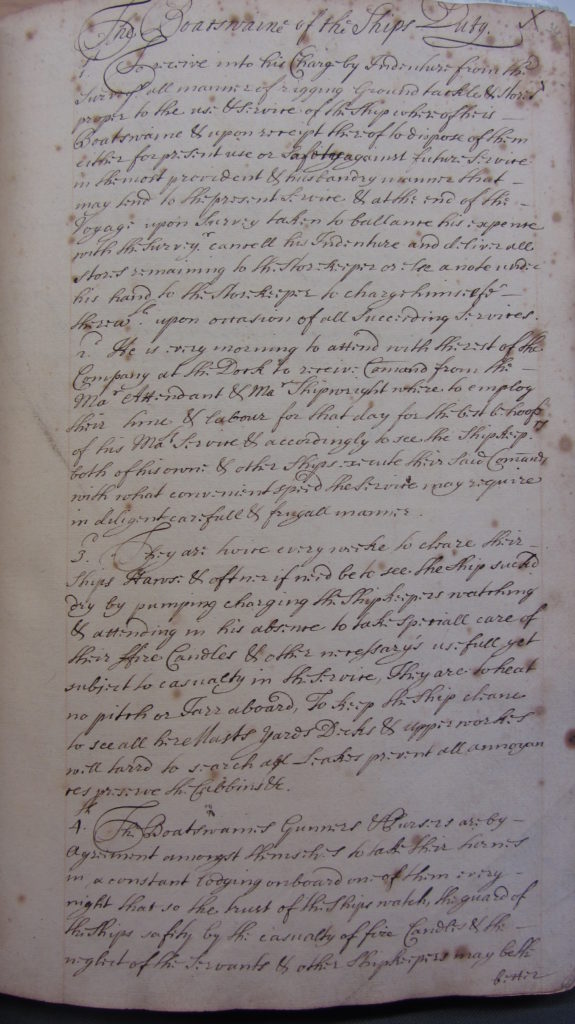 The Boatswaine of the Ships Duty.
1. To receive into his Charge by Indenture from the
Survey.r all manner of rigging Ground tackle & stores
proper to the use & service of the Ship where of he is
Boatswaine & upon receipt therof to dispose of them
either for present use or safety against future Service
in the most provident & husbandry manner that
may tend to the present Service & at the end of the
Voyage upon Survey taken to ballance his expence
with the Survey.r cancell his Indenture and deliver all
stores remaining to the Storekeeper or else a note under
his hand to the Storekeeper to charge himselfe
therewth. upon occasion of all Succeeding Services.
2. He is every morning to attend with the rest of the
Company at the Dock to receive Comand from the
Mar. Attendant & Mar. Shipwright where to employ
their time & labour for that day for the best behoof
of his Mats. Service & accordingly to see the Shipkeeprs.
both of his owne & other Ships execute their said Comands
with what convenient speed the Service may require
in diligent carefull & frugall manner.
3. They are twice every weeke to cleare their
Ships Hawse & oftner if need be to see the Ship sucked
dry by pumping charging the Shipkeepers watching
& attending in his absence to take speciall care of
their ffire Candles & other necessarys usefull yet
subject to casualty in the Service, They are to heat
no pitch or Tarr aboard, To keep the Ship cleane
to see all her Masts Yards Decks & upper workes
well tarrd to search all Leakes prevent all annoyan
ces preserve the Cabbins &c.
4. The Boatswaines Gunners & Pursers are by
Agreement amongst themselves to take their turnes
in a constant lodging onboard one of them every
night that so the trust of the Ships watch, the guard of
the Ships safety by the casualty of fire Candles & the
neglect of the Servants & other Shipkeepers may be the
better